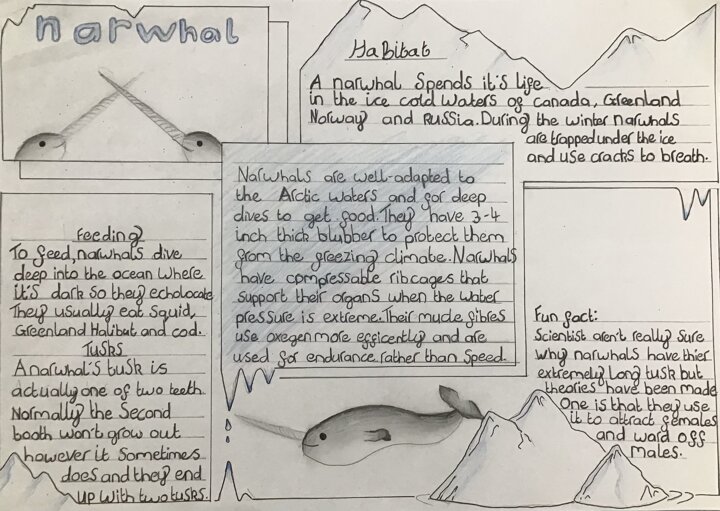 narwhal
Habitat
A narwhal Spends it's life
in the ice cold Waters of Canada, Greenland
Norway and Russia. During the winter narwhals
are trapped under the ice
and use cracks to breath.
Narwhals are well-adapted to
the Arctic Waters and for deep
dives to get food. They have 3-4
inch thick blubber to protect them
from the freezing climate. Narwhals
have compressable ribcages that
support their organs when the water
pressure is extreme. Their mucle fibres
use oxegen more efficently and are
used for endurance rather than Speed.
Feeding
To feed, narwhals dive
deep into the ocean where
it's dark so they echolocate
They usually eat Squid,
Greenland Halibut and cod.
Tusks
A narwhal's tusk is
actually one of two teeth.
Normally the Second
tooth won't grow out
however it Sometimes
does and they end
up with two tusks.
Fun fact:
Scientist aren't really Sure
why narwhals have thier
extremely long tusk but
theories have been made
One is that they use
it to attract females
and ward off
Males.